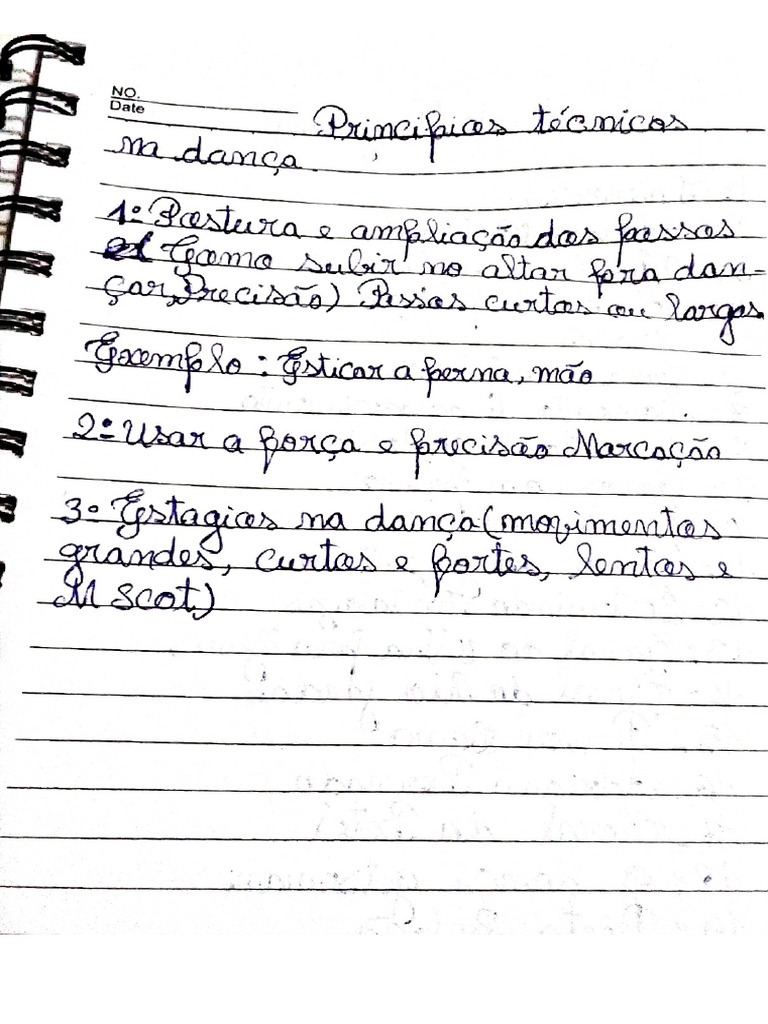 NO.
Date
Principios técnicos
na dança.
1º Postura e ampliação dos passos
Como subir no altar pora dan-
çar, Precisão) Passos curtos ou largos
Exemplo: Esticar a perna, mão
2º Usar a força e precisão Marcação
3º Estagios na dança (movimentos
grandes, curtos e fortes, lentos e
M Scot)